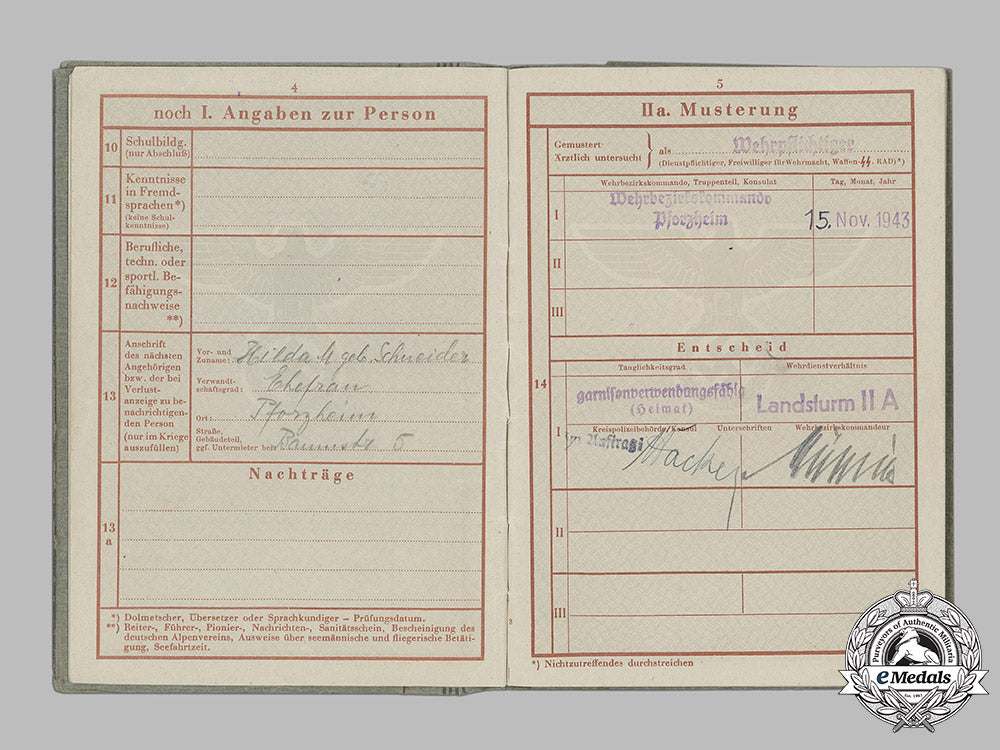 4
noch I. Angaben zur Person
10
Schulbildg.
(nur Abschluß)
11
Kenntnisse
in Fremd-
sprachen*)
(keine Schul-
kenntnisse)
12
Berufliche,
techn. oder
sportl. Be-
fähigungs-
nachweise
**)
13
Anschrift
des nächsten
Angehörigen
bzw. der bei
Verlust-
anzeige zu be-
nachrichtigen-
den Person
(nur im Kriege
auszufüllen)
Vor- und
Zuname: Hilda M geb. Schneider
Verwandt-
schaftsgrad: Ehefrau
Ort: Pforzheim
Straße,
Gebäudeteil,
ggf. Untermieter bei: 5
Nachträge
13
a
*) Dolmetscher, Übersetzer oder Sprachkundiger – Prüfungsdatum.
**) Reiter-, Führer-, Pionier-, Nachrichten-, Sanitätsschein, Bescheinigung des
deutschen Alpenvereins, Ausweise über seemännische und fliegerische Betäti-
gung, Seefahrtzeit.
5
IIa. Musterung
Gemustert
Ärztlich untersucht } als Wehrpflichtiger
(Dienstpflichtiger, Freiwilliger für Wehrmacht, Waffen-SS, RAD)*)
Wehrbezirkskommando, Truppenteil, Konsulat Tag, Monat, Jahr
I Wehrbezirkskommando
Pforzheim 15. Nov. 1943
II
III
14
Entscheid
Tauglichkeitsgrad Wehrdienstverhältnis
I garnisonverwendungsfähig
(Heimat) Landsturm II A
Kreispolizeibehörde/Konsul Unterschriften Wehrbezirkskommandeur
Im Auftrag:
II
III
*) Nichtzutreffendes durchstreichen
Purveyors of Authentic Militaria
eMedals